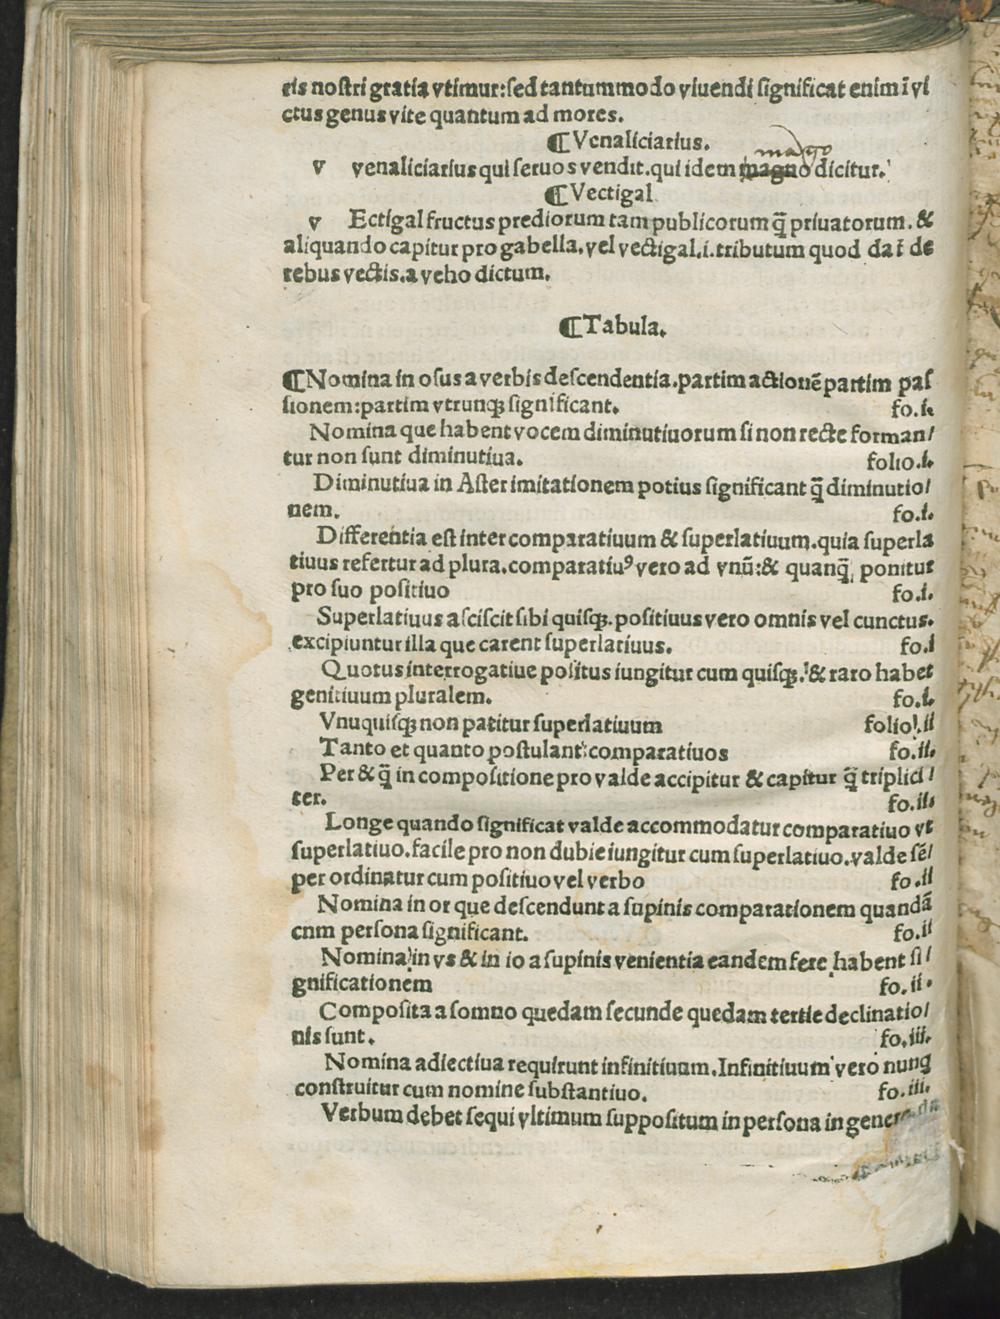 tis nostri gratia vtimur:sed tantummodo viuendi significat enim ī vi
ctus genus vite quantum ad mores.
¶Venaliciarius.
mango
v venaliciarius qui seruos vendit.qui idem magno dicitur.
¶Vectigal
v Ectigal fructus prediorum tam publicorum q̄ priuatorum. &
aliquando capitur pro gabella.vel vectigal.i.tributum quod daẗ de
rebus vectis.a veho dictum.
¶Tabula.
¶Nomina in osus a verbis descendentia.partim actionē partim pas
sionem:partim vtrunqꝫ significant. fo.i.
Nomina que habent vocem diminutiuorum si non recte forman/
tur non sunt diminutiua. folio.i.
Diminutiua in Aster imitationem potius significant q̄ diminutio/
nem. fo.i.
Differentia est inter comparatiuum & superlatiuum.quia superla
tiuus refertur ad plura.comparatiuꝰ vero ad vnū:& quanq̄ ponitur
pro suo positiuo fo.i.
Superlatiuus asciscit sibi quisqꝫ.positiuus vero omnis vel cunctus.
excipiuntur illa que carent superlatiuus. fo.i
Quotus interrogatiue positus iungitur cum quisqꝫ.& raro habet
genitiuum pluralem. fo.i.
Vnuquisqꝫ non patitur superlatiuum folio.ii
Tanto et quanto postulant comparatiuos fo.ii.
Per & q̄ in compositione pro valde accipitur & capitur q̄ triplici/
ter. fo.ii.
Longe quando significat valde accommodatur comparatiuo vt
superlatiuo.facile pro non dubie iungitur cum superlatiuo.valde sē/
per ordinatur cum positiuo vel verbo fo.ii
Nomina in or que descendunt a supinis comparationem quandā
cnm persona significant. fo.ii
Nomina in vs & in io a supinis venientia eandem fere habent si/
gnificationem fo.ii.
Composita a somno quedam secunde quedam tertie declinatio/
nis sunt. fo.iii.
Nomina adiectiua requirunt infinitiuum.Infinitiuum vero nunq
construitur cum nomine substantiuo. fo.iii.
Verbum debet sequi vltimum suppositum in persona in genere